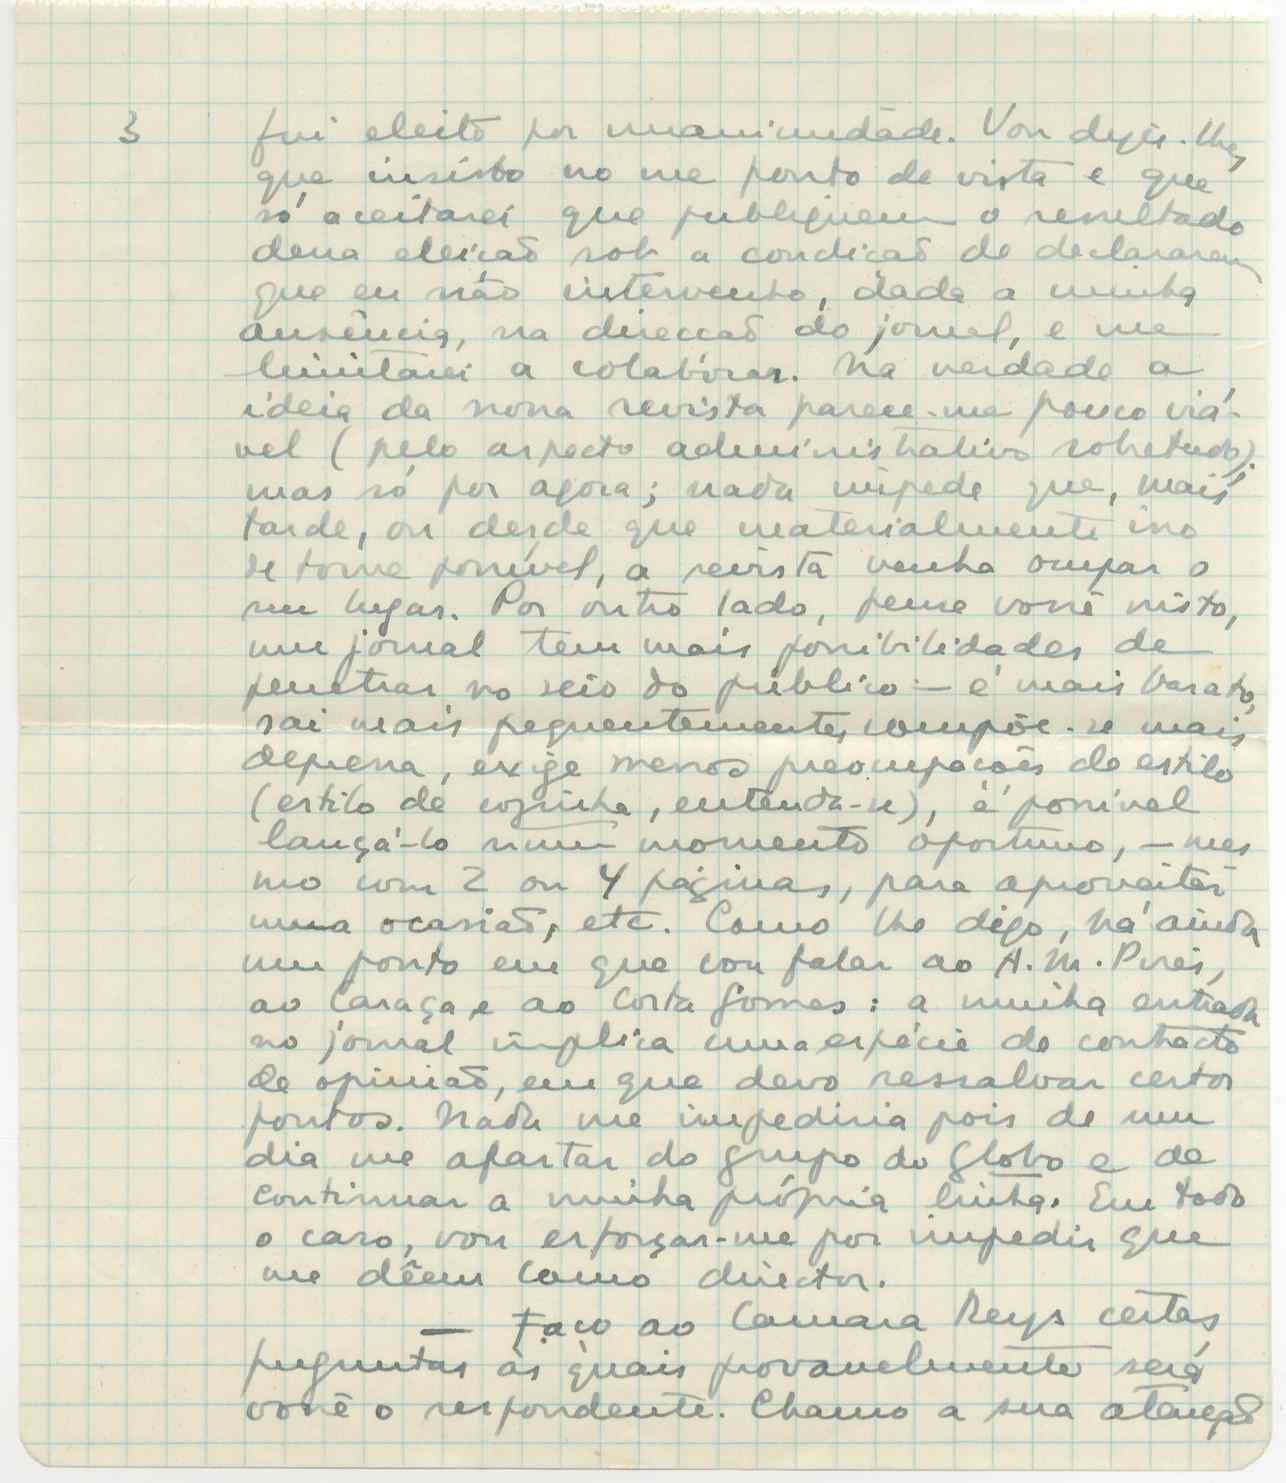 3 fui eleito por unanimidade. Vou dizer-lhes
que insisto no me ponto de vista e que
só aceitarei que publiquem o resultado
dessa eleição sob a condição de declararem
que eu não intervenho, dada a minha
ausência, na direcção do jornal, e me
limitarei a colaborar. Na verdade a
ideia da nova revista parece-me pouco viá-
vel (pelo aspecto administrativo sobretudo).
mas só por agora; nada impede que, mais
tarde, ou desde que materialmente isso
se torne possível, a revista venha ocupar o
seu lugar. Por outro lado, pense você nisto,
um jornal tem mais possibilidades de
penetrar no seio do público: — é mais barato,
sai mais frequentemente, compõe-se mais
depressa, exige menos preocupações de estilo
(estilo de cozinha, entenda-se), é possível
lançá-lo num momento oportuno, — mes
mo com 2 ou 4 páginas, para aproveitar
uma ocasião, etc. Como lhe digo, há ainda
um ponto em que vou falar ao A. M. Pires,
ao Caraça e ao Costa Gomes: a minha entrada
no jornal implica uma espécie de contracto
de opinião, em que devo ressalvar certos
pontos. Nada me impediria pois de um
dia me afastar do grupo do Globo e de
continuar a minha própria linha. Em todo
o caso, vou esforçar-me por impedir que
me dêem como director.
— Faço ao Camara Reys certas
perguntas às quais provavelmente será
você o respondente. Chamo a sua atenção